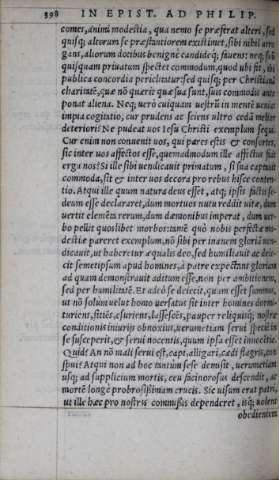 398 IN EPIST. AD PHILIP.
comes, animi modestia, qua nemo se præfert alteri, sed
quisq; alterum se præstantiorem existimet, sibi nihil arro
gans, aliorum dotibus benigne candideq; fauens: neq; suū
quisquam priuatum spectet commodum, quod ubi fit, ibi
publica concordia periclitatur: sed quisq; per Christianā
charitatē, quæ nō quærit quæ sua sunt, suis commodis ante
ponat aliena. Neq; uero cuiquam uestrū in mentē ueniat
impia cogitatio, cur prudens ac sciens ultro cedā melior
deteriori? Ne pudeat uos Iesu Christi exemplum sequi.
Cur enim non conuenit uos, qui pares estis & consortes,
sic inter uos affectos esse, quemadmodum ille affectus fuit
erga nos? Si ille sibi uendicauit primatum, si sua captauit
commoda, sit & inter uos decora pro rebus hisce conten-
tio. Atqui ille quum natura deus esset, atq; ipsis factis se
deum esse declararet, dum mortuis uitā reddit uitæ, dum
uertit elemēta rerum, dum dæmonibus imperat, dum uer
bo pellit quoslibet morbos: tamē quò nobis perfectæ mo-
destiæ pareret exemplum, nō sibi per inanem gloriā uen-
dicauit, ut haberetur æqualis deo, sed humiliauit ac deie-
cit semetipsum apud homines, à patre expectans gloriam
ad quam demonstrauit aditum esse, non per ambitionem,
sed per humilitatē. Et adeò se deiecit, quum esset summus,
ut nō solum uelut homo uersatus sit inter homines dormi-
turiens, sitiēs, esuriens, lassescēs, pauper reliquisq; nostræ
conditionis iniurijs obnoxius, uerumetiam serui speciē in
se susceperit, & serui nocentis, quum ipsa esset innocētia.
Quid? An nō mali serui est, capi, alligari, cædi flagris, con
spui? Atqui non ad hoc tantùm sese demisit, uerumetiam
usq; ad supplicium mortis, ceu facinorosus descendit, ac
mortē longè probrosissimam crucis. Sic uisum erat patri,
ut ille hæc pro nostris commissis dependeret, isq; uolens
obedientem